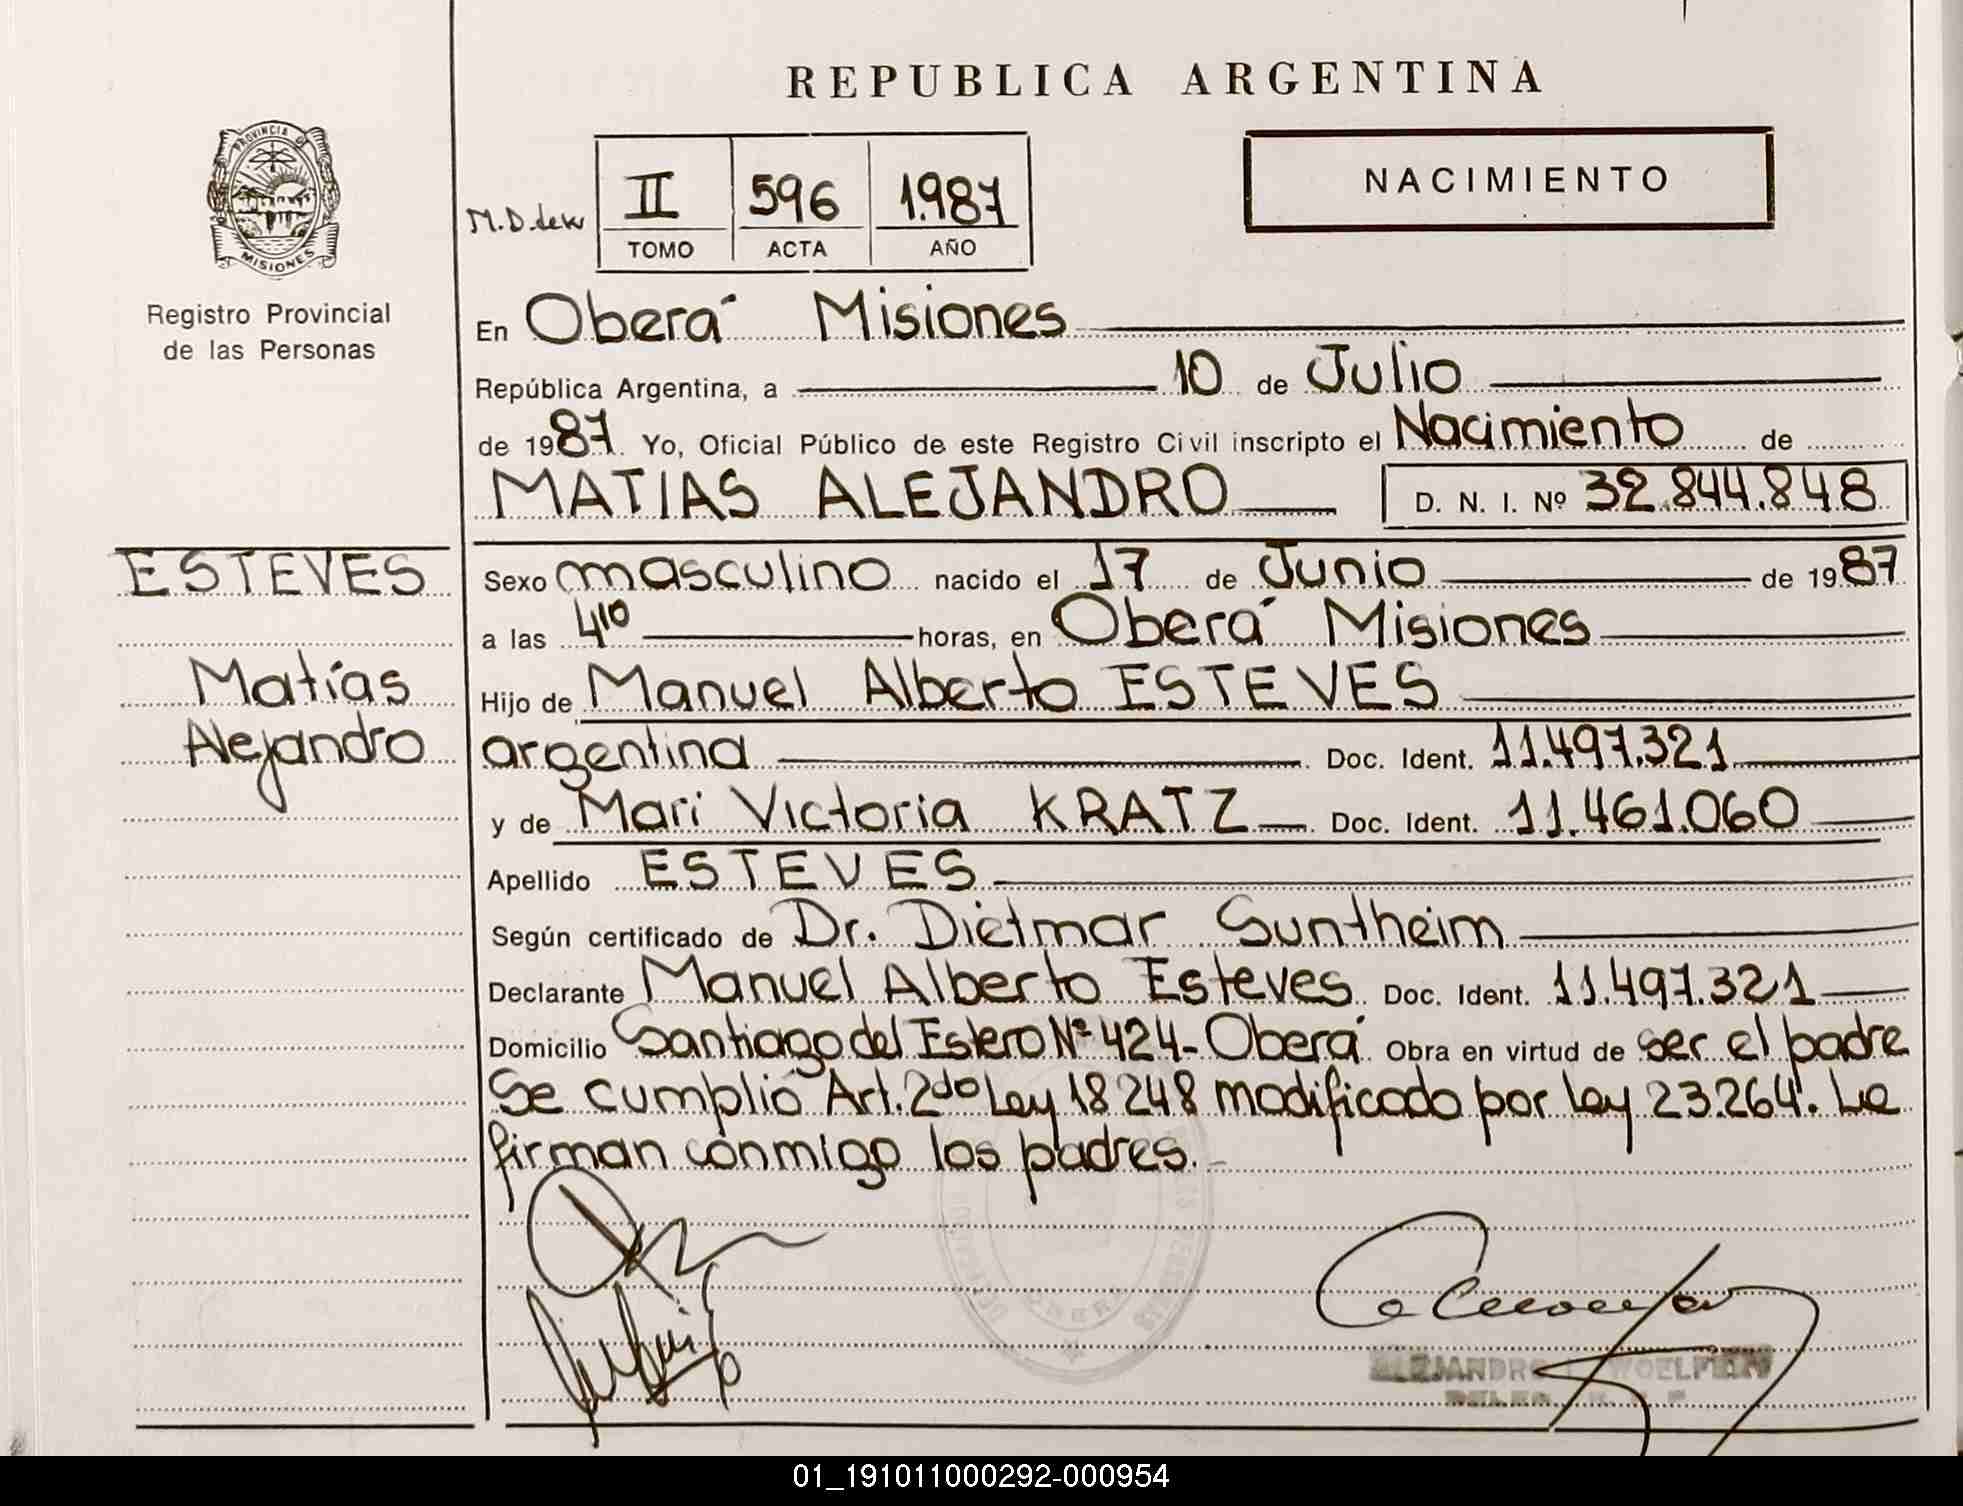 REPUBLICA ARGENTINA
PROVINCIA DE
MISIONES
Registro Provincial
de las Personas
II 596 1.987
TOMO ACTA AÑO
NACIMIENTO
En Oberá Misiones
República Argentina, a 10 de Julio
de 1987 Yo, Oficial Público de este Registro Civil inscripto el Nacimiento de
MATIAS ALEJANDRO D. N. I. Nº 32.844.848
ESTEVES
Matías
Alejandro
Sexo masculino nacido el 17 de Junio de 1987
a las 4¹⁰ horas, en Oberá Misiones
Hijo de Manuel Alberto ESTEVES
argentina Doc. Ident. 11.497.321
y de Mari Victoria KRATZ Doc. Ident. 11.461.060
Apellido ESTEVES
Según certificado de Dr. Dietmar Suntheim
Declarante Manuel Alberto Esteves Doc. Ident. 11.497.321
Domicilio Santiago del Estero Nº 424- Oberá Obra en virtud de ser el padre
Se cumplió Art. 2do Ley 18248 modificado por Ley 23.264. Le
firman conmigo los padres.-
ALEJANDRO
01_191011000292-000954